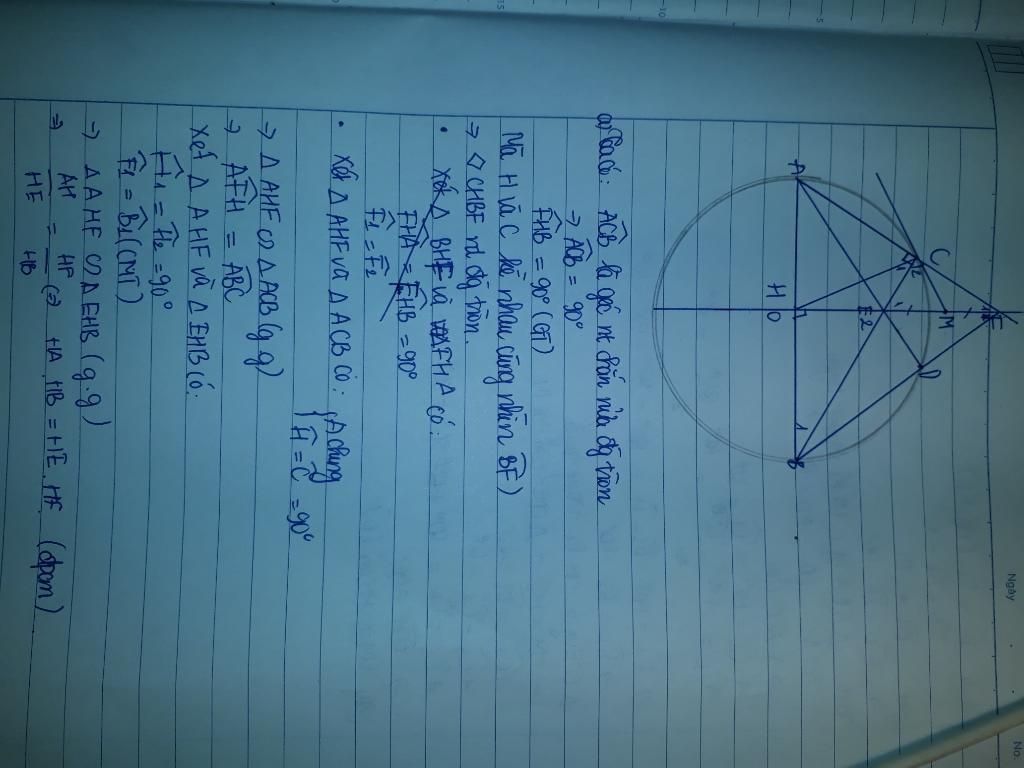 Ngày
No.
A
C
H
O
E2
M
F
D
B
1
a) Ta có: ACB là góc nt chắn nửa đg tròn
=> ACB = 90°
FHB = 90° (GT)
Mà H và C kề nhau cùng nhìn BF)
=> ◇ CHBF nt đg tròn.
• Xét Δ BHE và FHA có:
FHA = EHB = 90°
F1 = F2
• Xét Δ AHF và Δ ACB có: { A chung
H = C = 90°
=> Δ AHF ∽ Δ ACB (g.g)
=> AFH = ABC
Xét Δ AHF và Δ EHB có:
H1 = H2 = 90°
F1 = B1 (CMT)
=> Δ AHF ∽ Δ EHB (g.g)
=> AH/HE = HF/HB (=> HA.HB = HE.HF (đpcm)